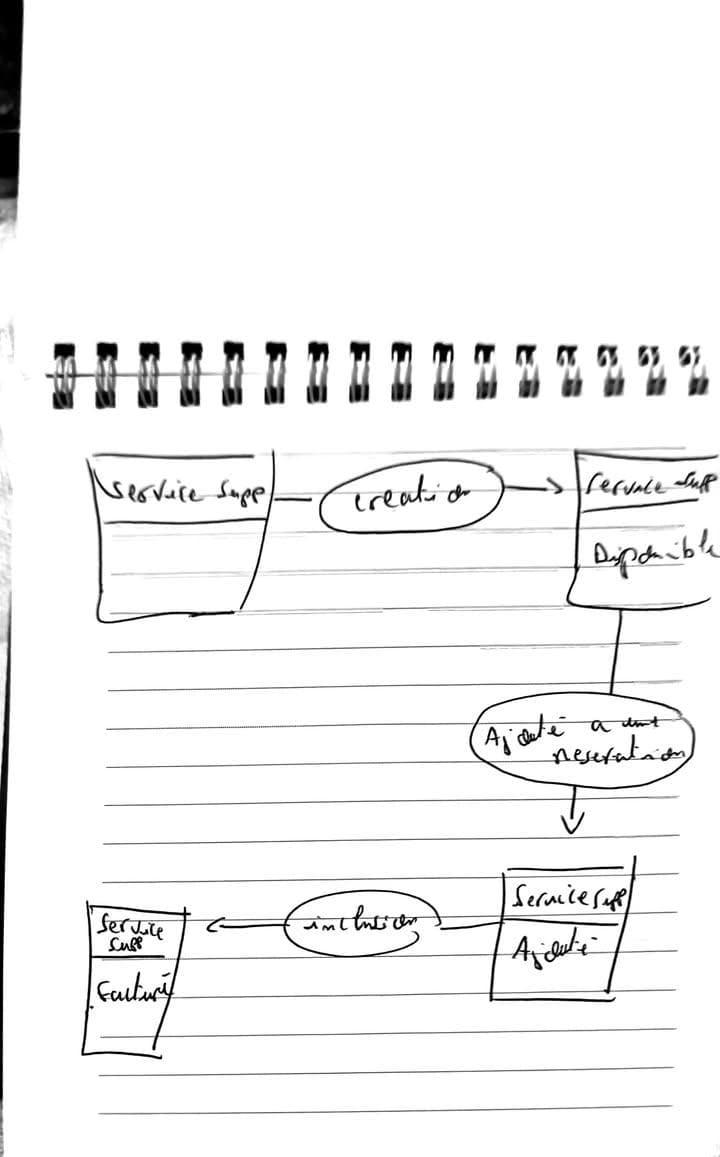 Service Supp
creation
Service Supp
Disponible
Ajouté a une
reservation
Service Supp
Ajouté
inclusion
Service
Supp
Facturé